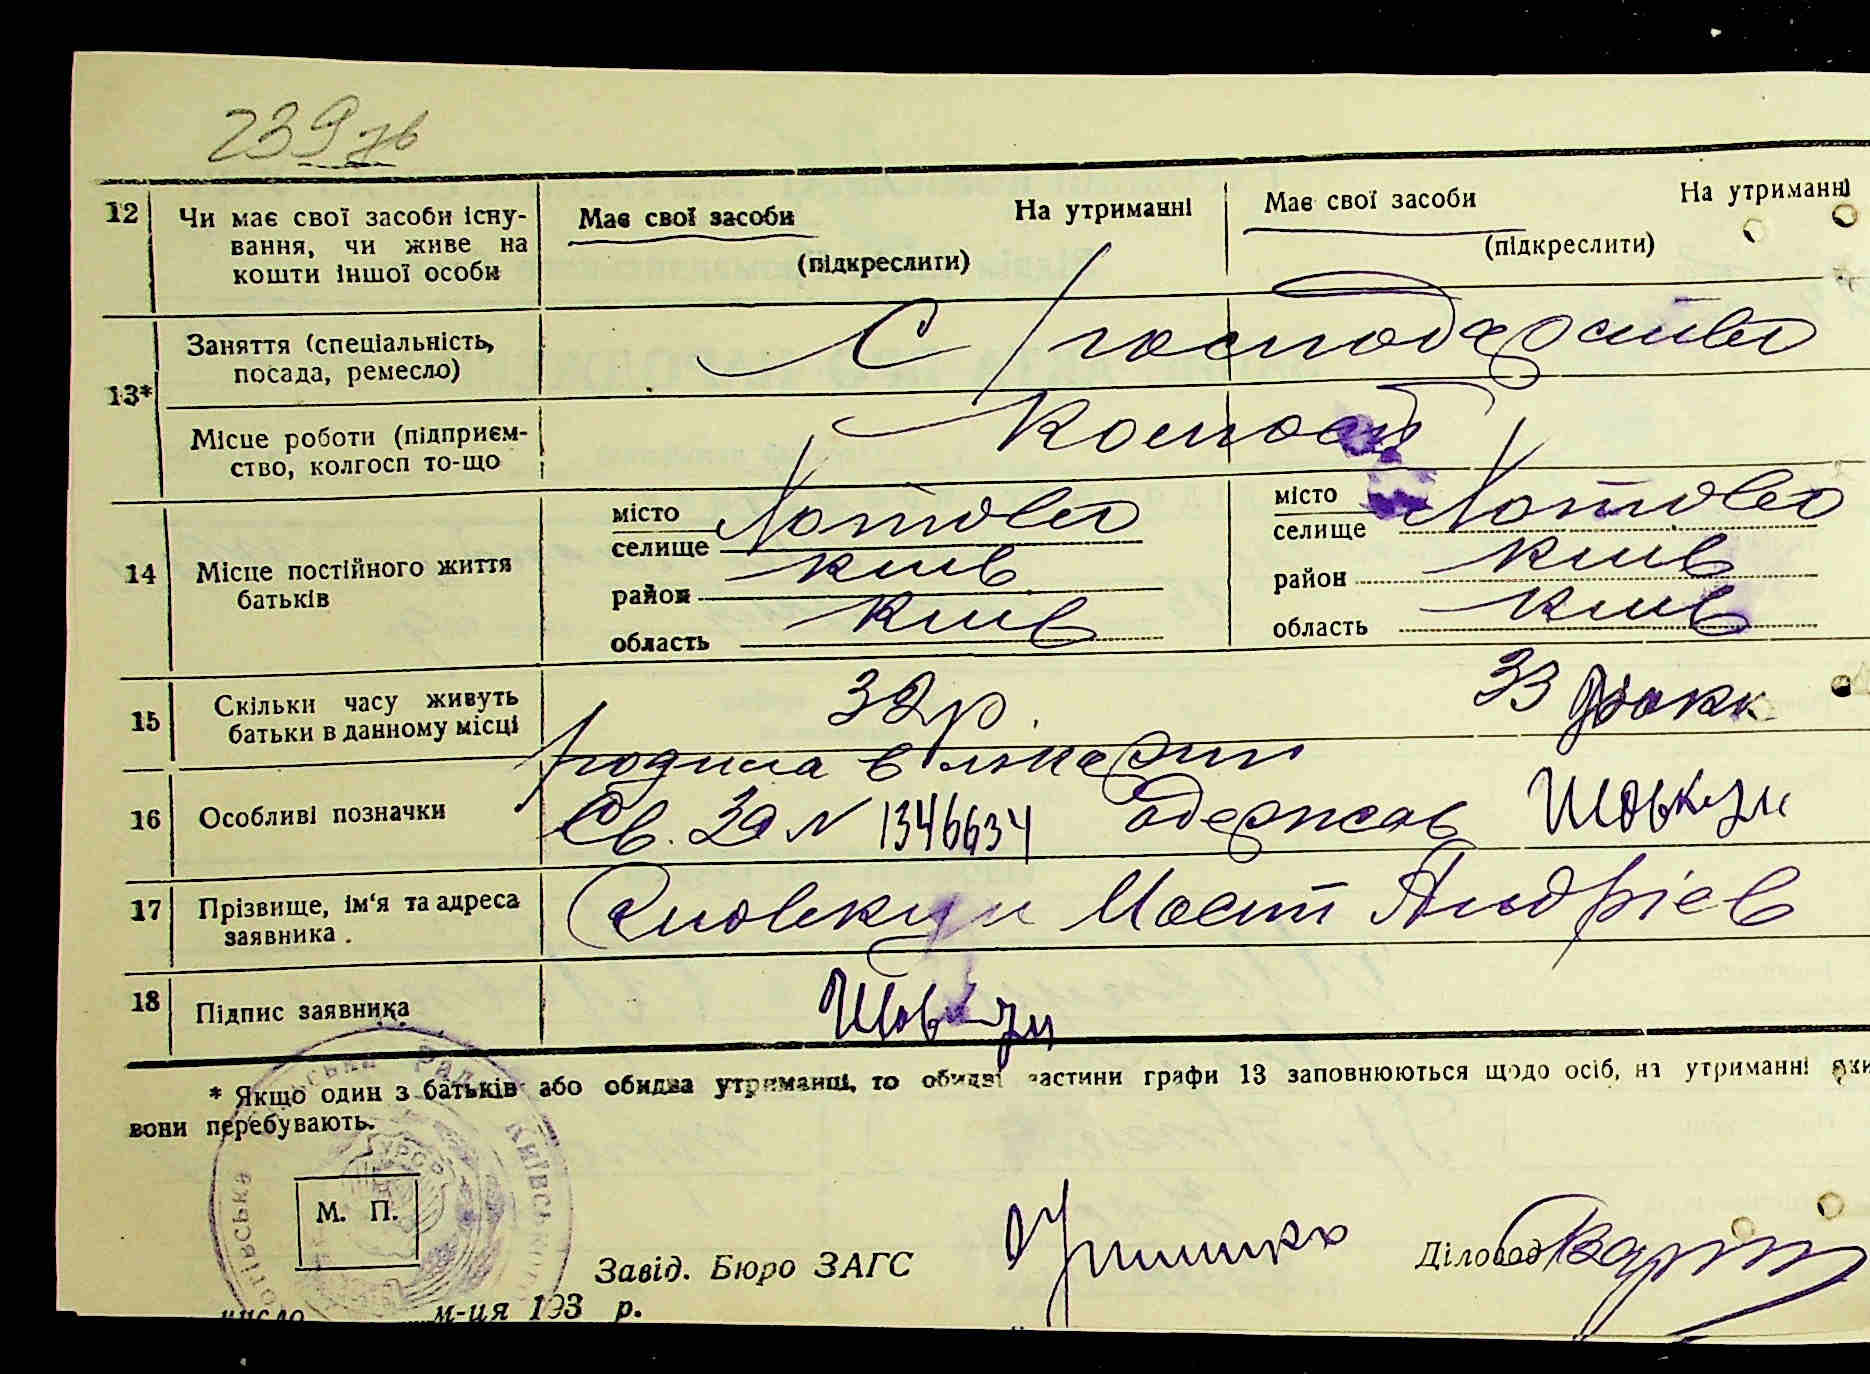 239 зв
12 Чи має свої засоби існу- Має свої засоби На утриманні Має свої засоби На утриманні
вання, чи живе на (підкреслити) (підкреслити)
кошти іншої особи
13* Заняття (спеціальність, С/господарство
посада, ремесло)
Місце роботи (підприєм-
ство, колгосп то-що
14 Місце постійного життя
батьків
місто Хотово місто Хотово
селище селище
район Київ район Київ
область Київ область Київ
15 Скільки часу живуть 32 р. 33 роки
батьки в данному місці
16 Особливі позначки
родила в лікарні
Св. За № 1346634 одержав Шовкун
17 Прізвище, ім'я та адреса Шовкун Андрієв
заявника.
18 Підпис заявника Шовкун
* Якщо один з батьків або обидва утриманці, то обидві частини графи 13 заповнюються щодо осіб, на утриманні яки
вони перебувають.
Рад Київсько
УРСР
М. П.
Завід. Бюро ЗАГС Діловод
число м-ця 193 р.